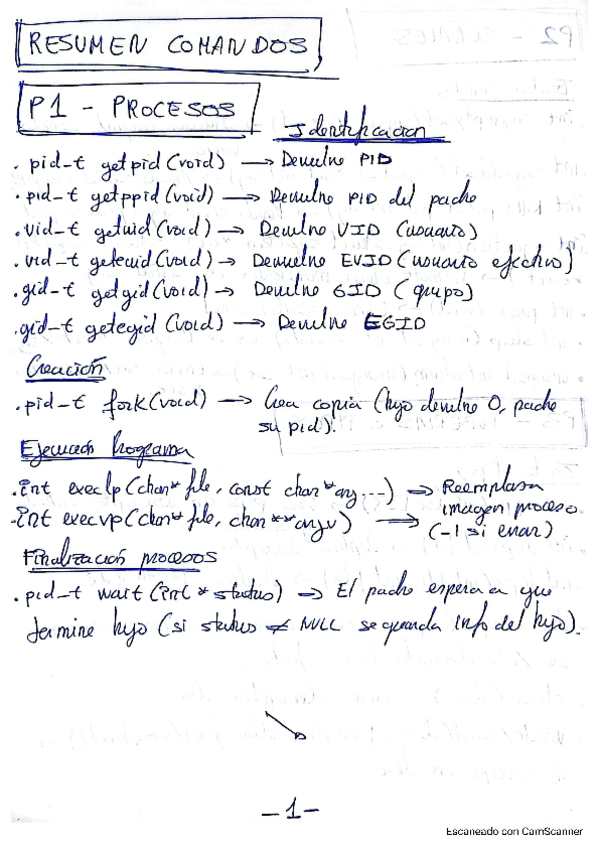 RESUMEN COMANDOS
P1 - PROCESOS
Identificación
. pid_t getpid(void) → Devuelve PID
. pid_t getppid(void) → Devuelve PID del padre
. uid_t getuid(void) → Devuelve UID (usuario)
. uid_t geteuid(void) → Devuelve EUID (usuario efectivo)
. gid_t getgid(void) → Devuelve GID (grupo)
. gid_t getegid(void) → Devuelve EGID
Creación
. pid_t fork(void) → Crea copia (hijo devuelve 0, padre
su pid).
Ejecución Programa
. int execlp(char* file, const char* arg...) → Reemplaza
imagen proceso
. int execvp(char* file, char** argv) → (-1 si error)
Finalización procesos
. pid_t wait(int* status) → El padre espera a que
termine hijo (si status ≠ NULL se guarda info del hijo).
-1-
Escaneado con CamScanner